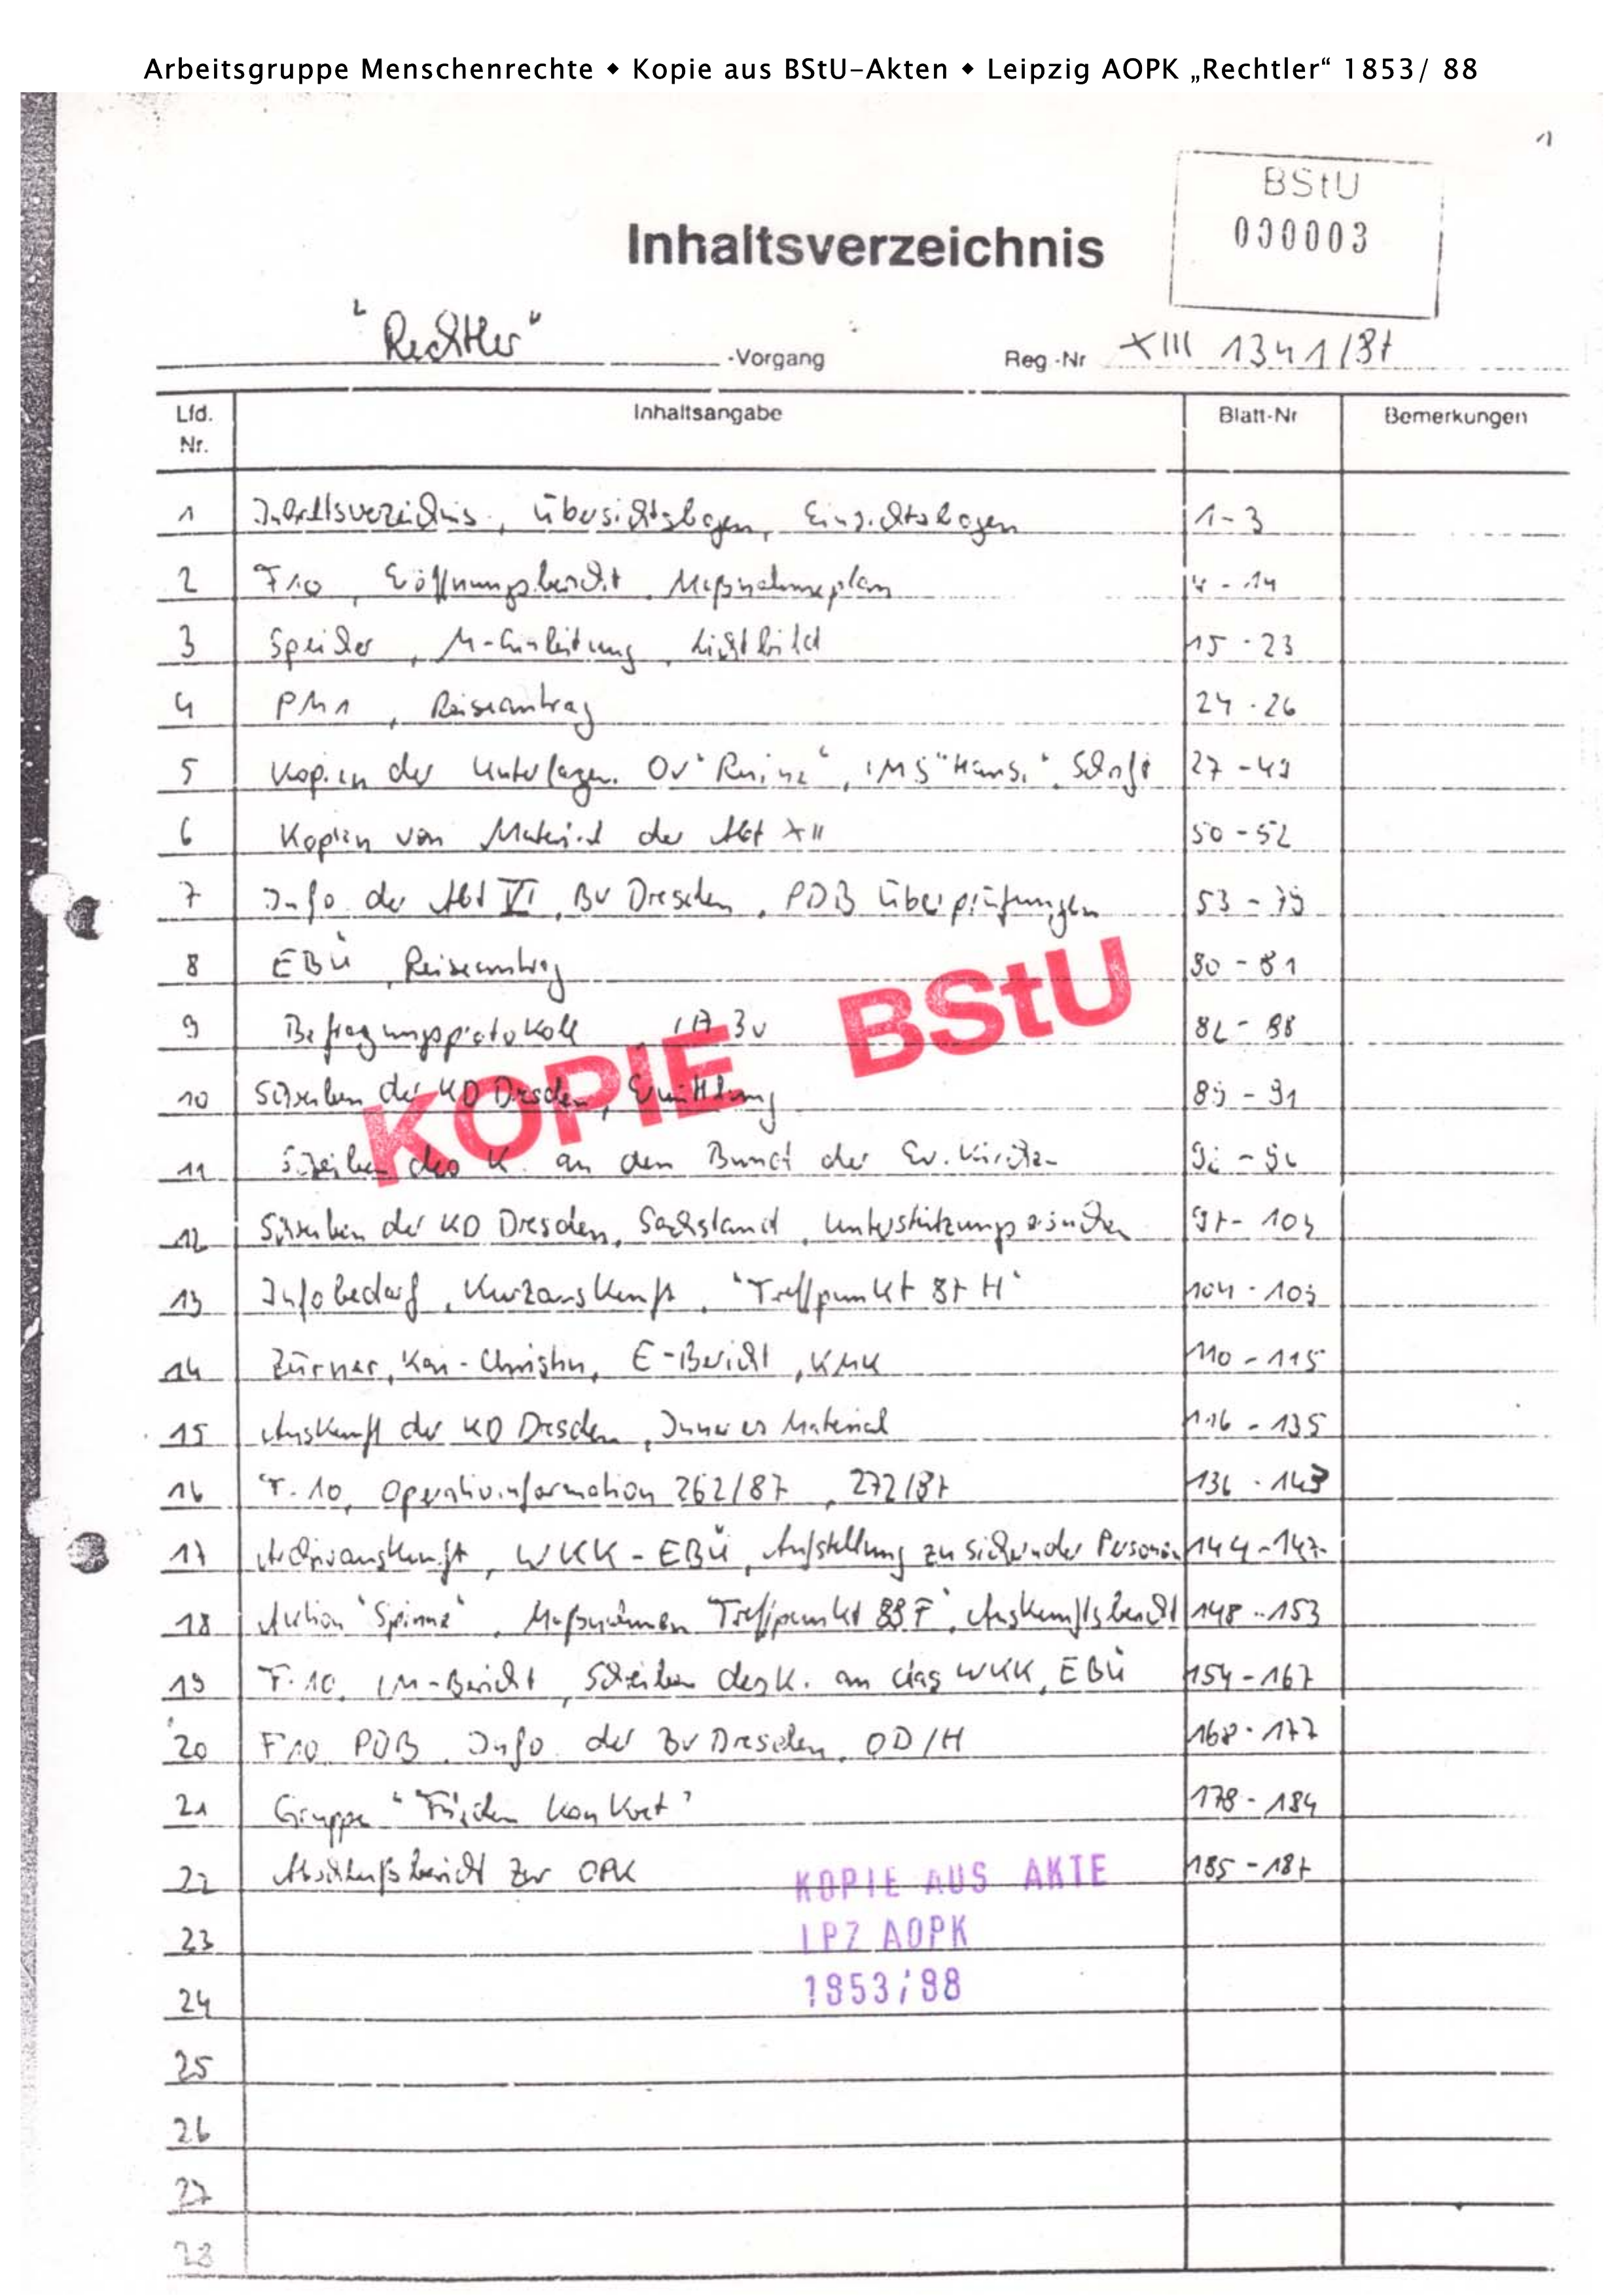 Arbeitsgruppe Menschenrechte ◆ Kopie aus BStU-Akten ◆ Leipzig AOPK „Rechtler“ 1853/ 88
1
BStU
000003
Inhaltsverzeichnis
"Rechtler" -Vorgang Reg.-Nr XIII 1341/87
Lfd. Nr. Inhaltsangabe Blatt-Nr Bemerkungen
1 Inhaltsverzeichnis, Übersichtsbogen, Einsichtsbogen 1-3
2 F10, Eröffnungsbericht, Maßnahmeplan 4-14
3 Speicher, M-Einleitung, Lichtbild 15-23
4 PM1, Reiseantrag 24-26
5 Kopien der Unterlagen OV "Ruine", IMS "Hans", Schrift 27-49
6 Kopien von Material der Abt XII 50-52
7 Info der Abt VI, BV Dresden, PDB Überprüfungen 53-79
8 EBÜ, Reiseantrag 80-81
9 Befragungsprotokoll 82-88
10 Schreiben der KD Dresden, Ermittlung 89-91
11 Schreiben des K. an den Bund der Ev. Kirchen
12 Schreiben der KD Dresden, Sachstand, Unterstützungsersuchen 97-103
13 Infobedarf, Kurzauskunft, "Treffpunkt 87 H" 104-109
14 Zürner, Kai-Christin, E-Bericht, KMK 110-115
15 Auskunft der KD Dresden, Inneres Material 116-135
16 F.10, Operativinformation 262/87, 272/87 136-143
17 Archivauskunft, WKK-EBÜ, Aufstellung zu sichernder Personen 144-147
18 Aktion "Spinne", Maßnahmen "Treffpunkt 88 F", Auskunftsbericht 148-153
19 F.10, IM-Bericht, Schreiben des K. an das WKK, EBÜ 154-167
20 F10, PDB, Info der BV Dresden, OD/H 168-177
21 Gruppe "Frieden konkret" 178-184
22 Abschlußbericht zur OPK 185-187
23
24
25
26
27
28
KOPIE BStU
KOPIE AUS AKTE
LPZ AOPK
1853/88